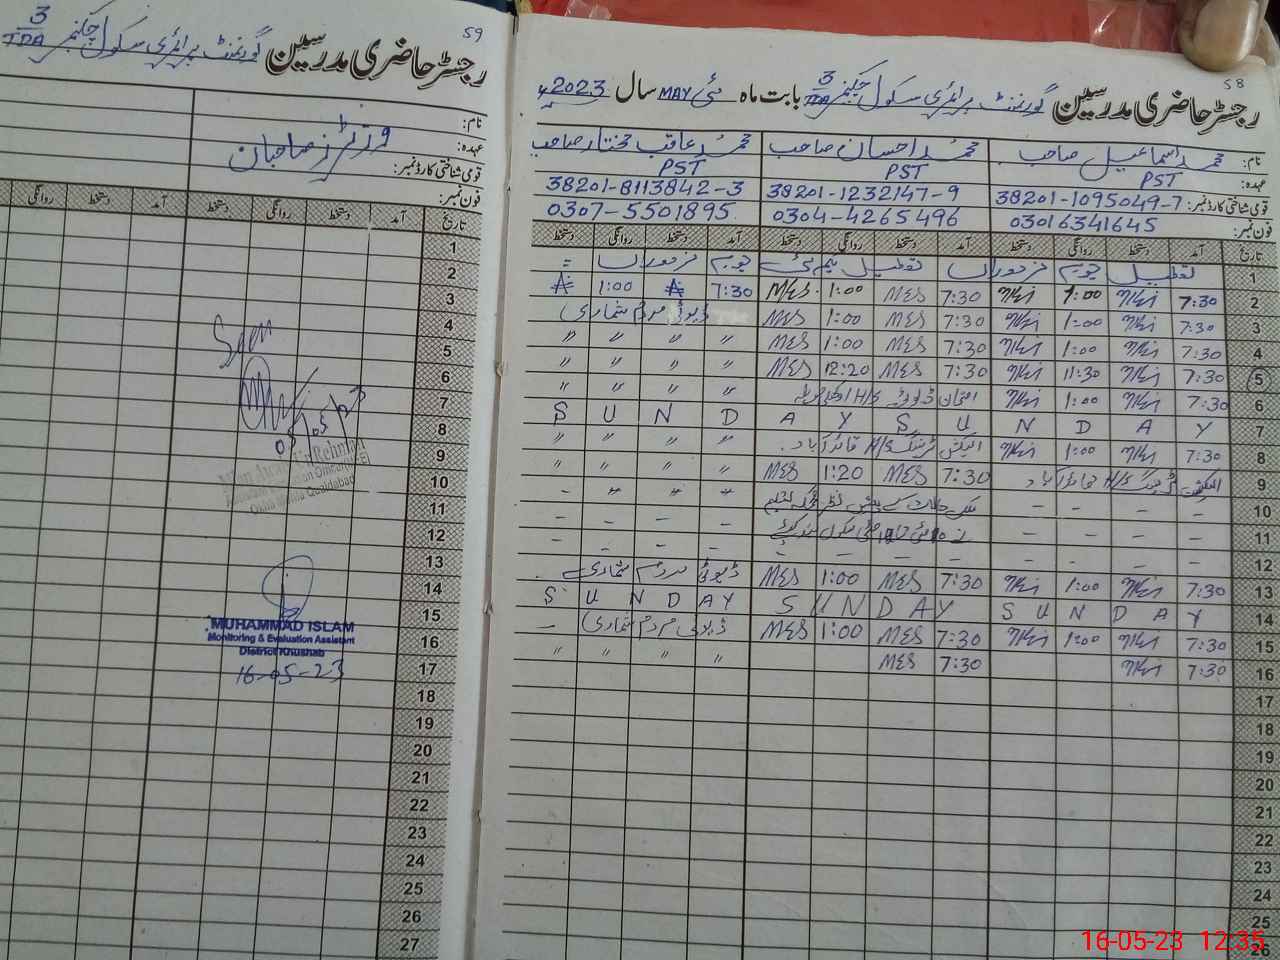 58
رجسٹر حاضری مدرسین گورنمنٹ پرائمری سکول چکنمبر 3/TDA بابت ماہ مئی MAY سال 2023ء
نام: محمد اسماعیل صاحب محمد احسان صاحب محمد عاقب مختار صاحب
عہدہ: PST PST PST
قومی شناختی کارڈ نمبر: 38201-1095049-7 38201-1232147-9 38201-8113842-3
فون نمبر: 03016341645 0304-4265496 0307-5501895
تاریخ آمد دستخط روانگی دستخط آمد دستخط روانگی دستخط آمد دستخط روانگی دستخط
1 تعطیل یوم مزدوراں تعطیل یکم مئی یوم مزدوراں =
2 7:30 1:00 7:30 MES 1:00 MES 7:30 1:00
3 7:30 1:00 7:30 MES 1:00 MES ڈیوٹی مردم شماری
4 7:30 1:00 7:30 MES 1:00 MES " " " "
5 7:30 11:30 7:30 MES 12:20 MES " " " "
6 7:30 1:00 امتحان ڈیوٹی H/S " " " "
7 Y A D N U S Y A D N U S
8 7:30 1:00 الیکشن ٹریننگ H/S قائدآباد " " " "
9 الیکشن ٹریننگ H/S قائدآباد 7:30 MES 1:20 MES " " " "
10 – – – – ملکی حالات کے پیش نظر محکمہ تعلیم " " " –
11 – – – – نے 10 مئی تا – – – –
12 – – – – – – – – – – – –
13 7:30 1:00 7:30 MES 1:00 MES ڈیوٹی مردم شماری
14 S U N D A Y S U N D A Y S U N D A Y
15 7:30 1:00 7:30 MES 1:00 MES ڈیوٹی مردم شماری –
16 7:30 7:30 MES " " " "
17
18
19
20
21
22
23
24
25
26
59
رجسٹر حاضری مدرسین گورنمنٹ پرائمری سکول چکنمبر 3/TDA
نام:
عہدہ: وزیٹرز صاحبان
قومی شناختی کارڈ نمبر:
فون نمبر:
تاریخ آمد دستخط روانگی دستخط آمد دستخط روانگی
1
2
3
4
5
6
7
8
9
10
11
12
13
14
15
16
17
18
19
20
21
22
23
24
25
26
27
Seen
08/05/23
MUHAMMAD ISLAM
Monitoring & Evaluation Assistant
District Khushab
16-05-23
16-05-23 12:35